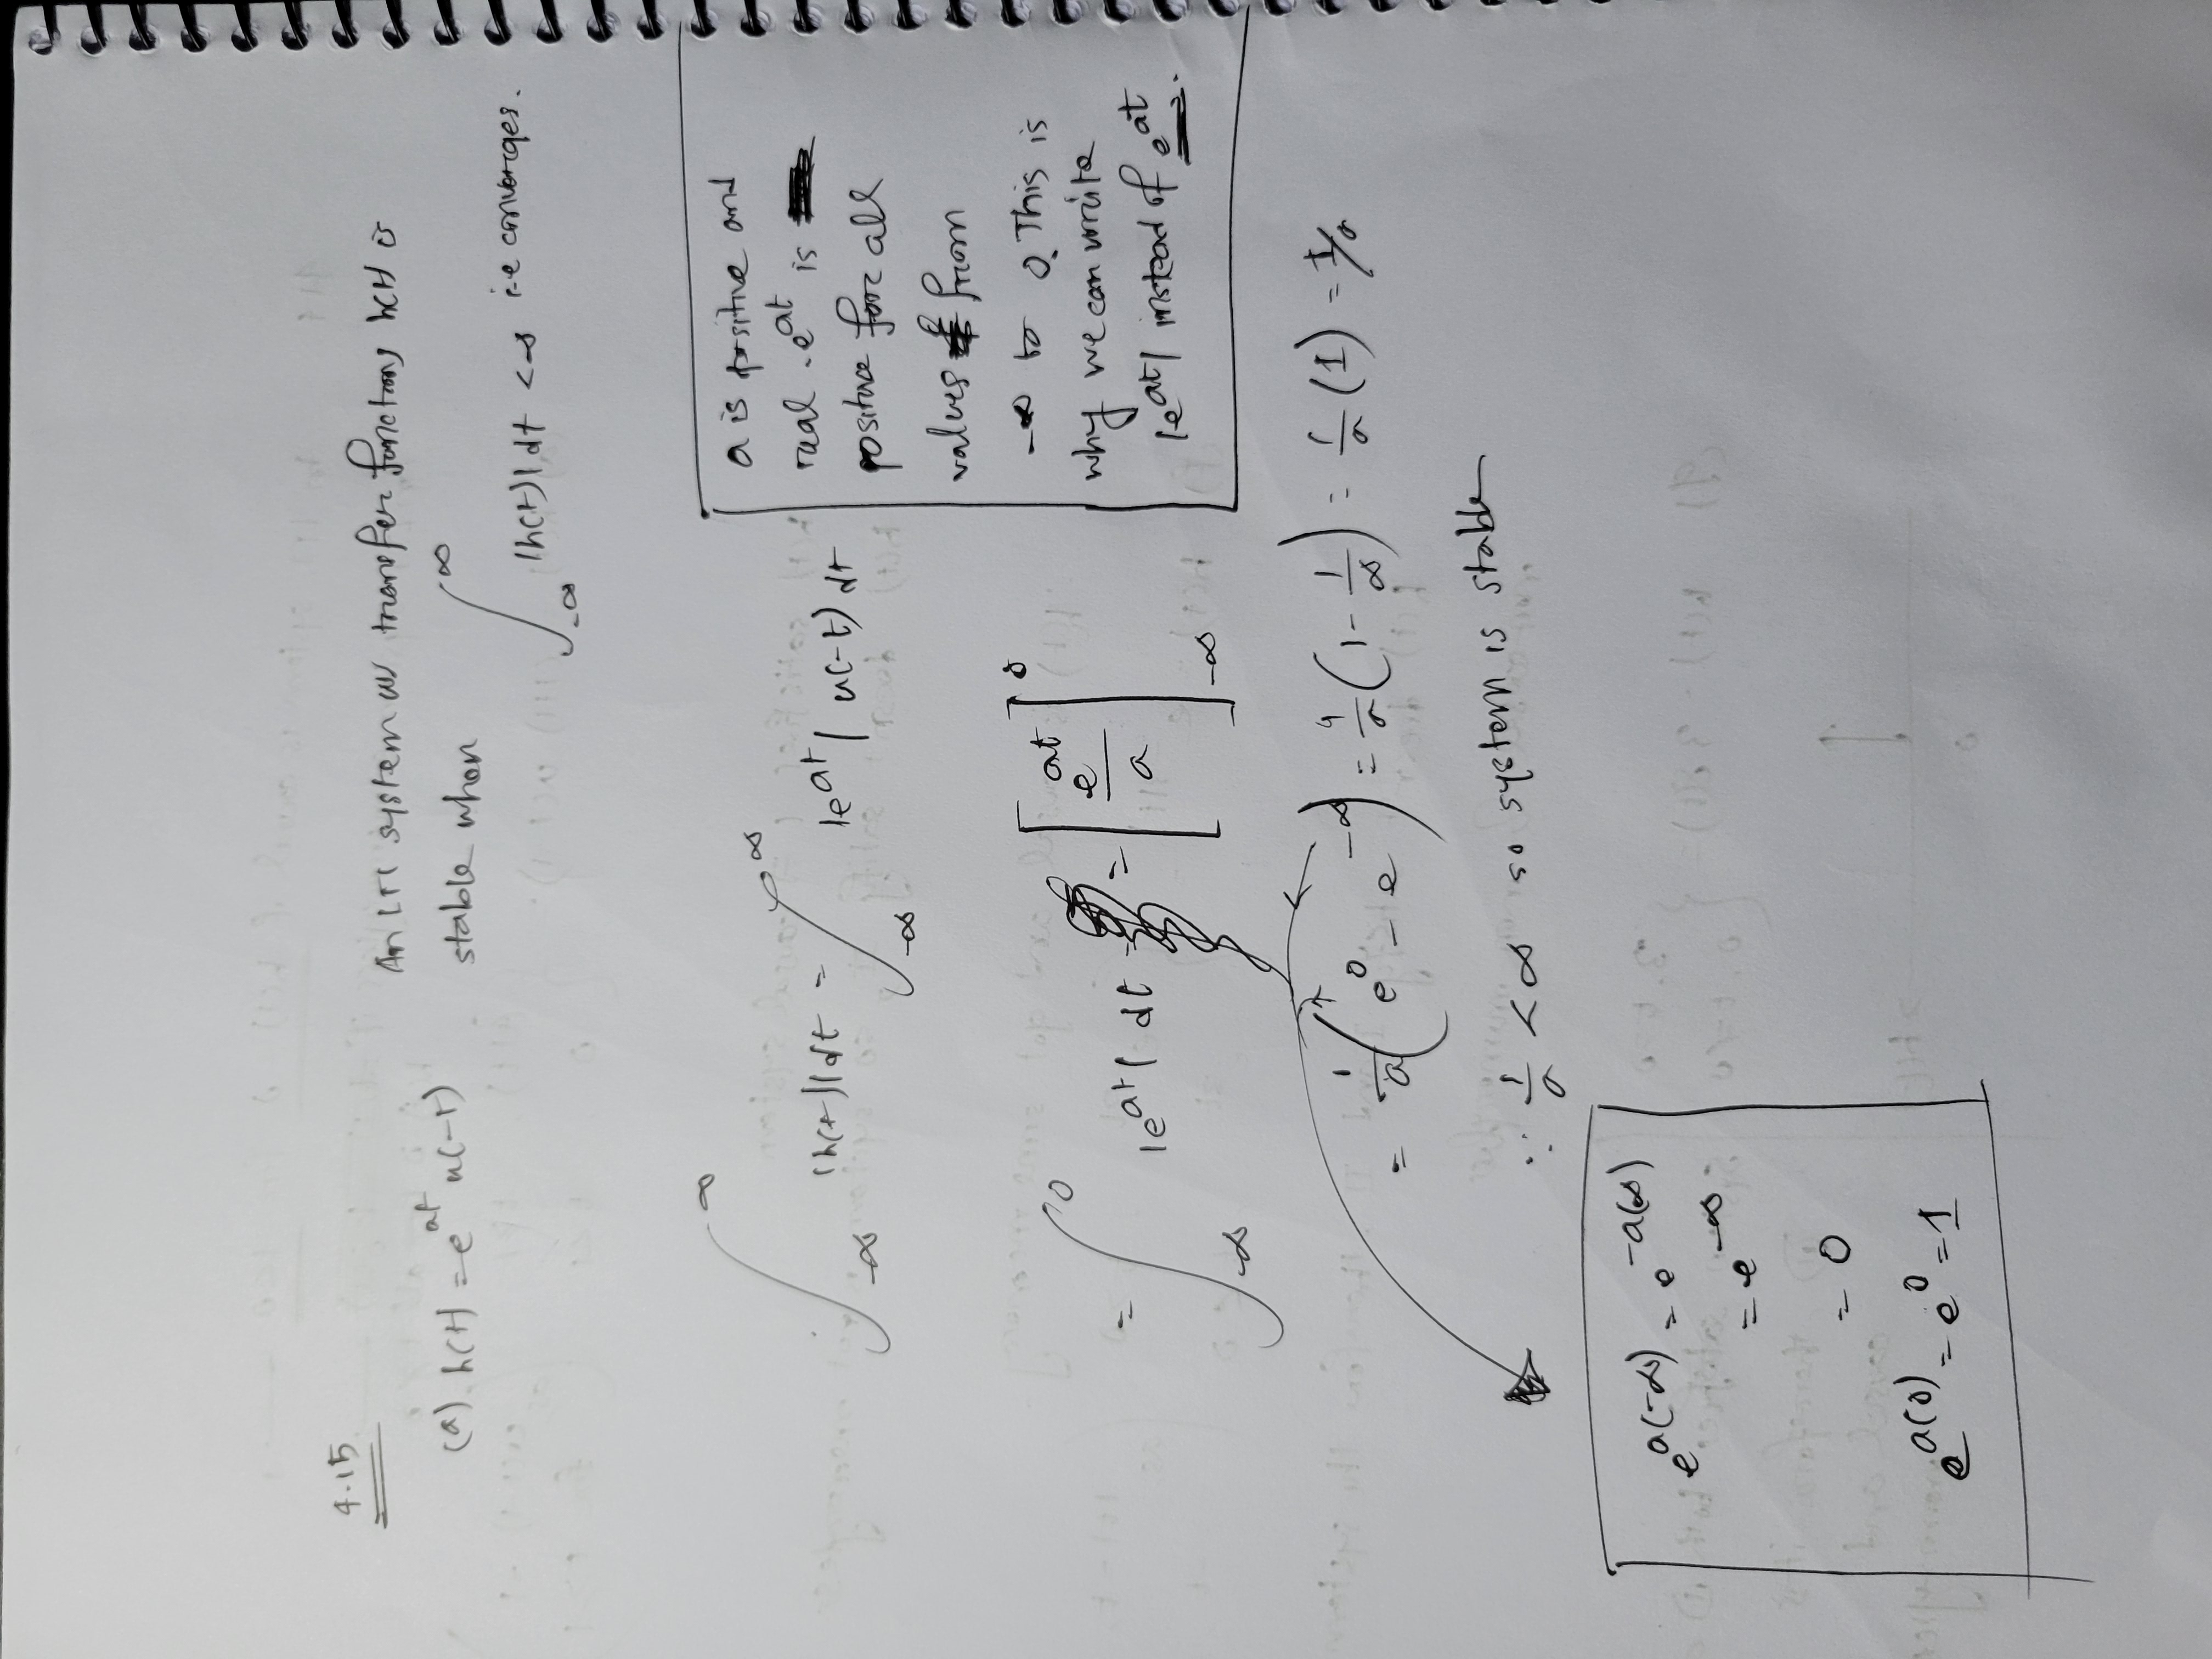 4.15
(a) h(t) = e^{at} u(-t)
An LTI system w/ transfer functions h(t) is
stable when ∫_{-∞}^{∞} |h(t)| dt < ∞ i.e converges.
∫_{-∞}^{∞} |h(t)| dt = ∫_{-∞}^{∞} |e^{at}| u(-t) dt
= ∫_{-∞}^{0} |e^{at}| dt = [e^{at}/a]_{-∞}^{0}
a is positive and
real . e^{at} is
positive for all
values from
-∞ to 0. This is
why we can write
|e^{at}| instead of e^{at}.
= 1/a (e^0 - e^{-∞}) = 1/a (1 - 1/∞) = 1/a (1) = 1/a
∵ 1/a < ∞ so system is stable
e^{a(-∞)} = e^{-a(∞)}
= e^{-∞}
= 0
e^{a(0)} = e^0 = 1